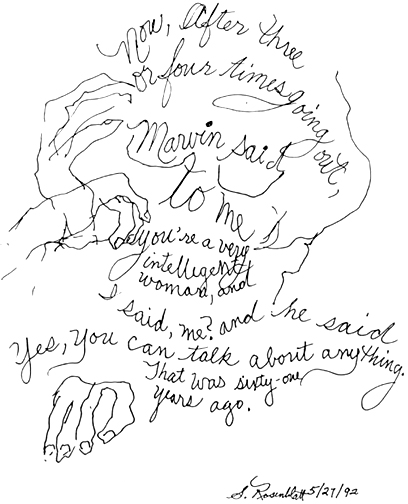 Now, After three
or four times going out,
Marvin said
to me
"you're a very
intellegent
woman, and
I said, me? and he said
Yes, you can talk about anything.
That was sixty-one
years ago.
S. Rosenblatt 5/27/92